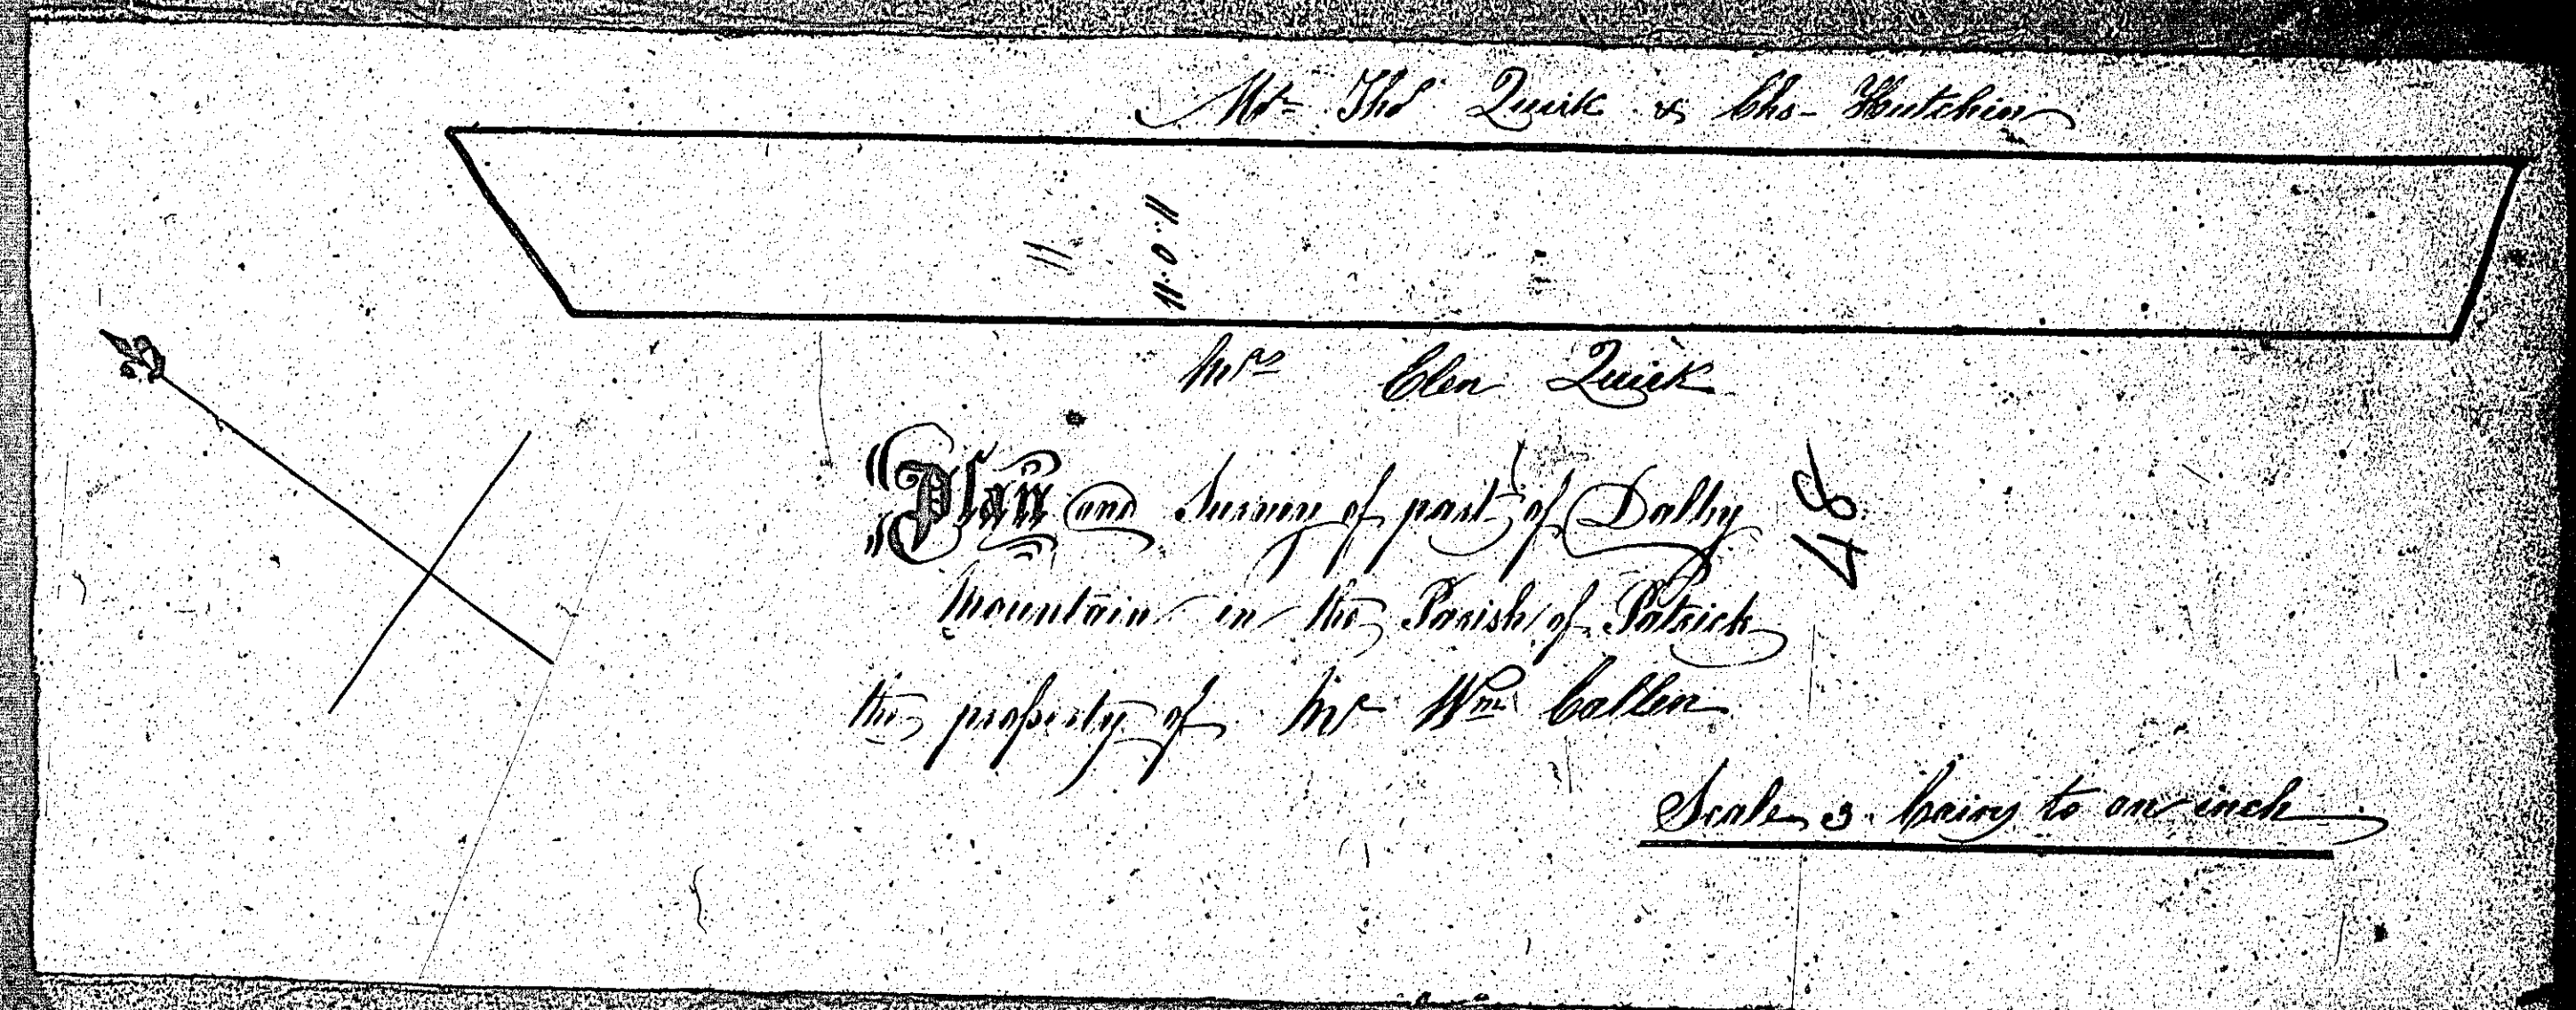 Mr Thos Quirk & Chs- Hutchin
11
11.0.11
Mrs Elen Quirk
Plan and Survey of part of Dalby
Mountain in the Parish of Patrick
the property of Mr Wm Callen
48
Scale 3 to an inch